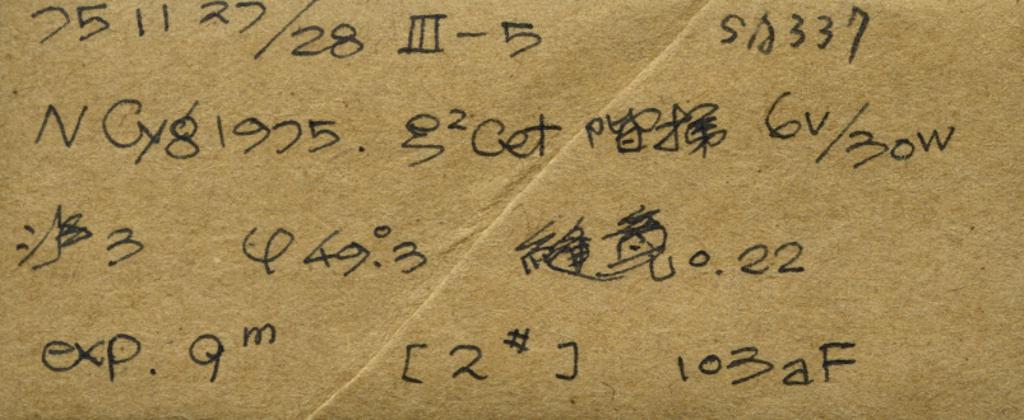 75 11 27/28 III-5 SA337
N Cyg 1975. ξ²Cet 階梯 6V/30W
滤 3 φ 49°.3 縫寬 0.22
exp. 9ᵐ [2#] 103aF